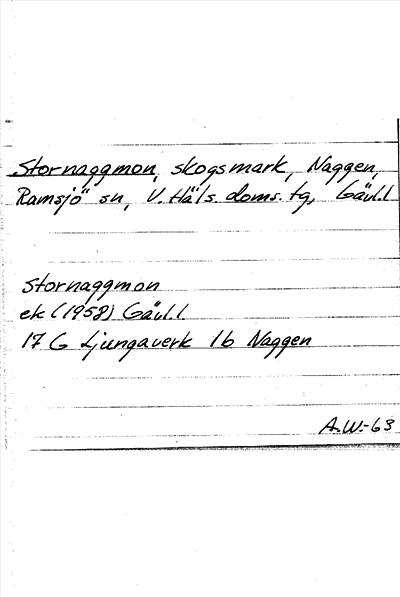 Stornaggmon, skogsmark, Naggen,
Ramsjö sn, V. Häls. doms. tg, Gävl.l
Stornaggmon
ek (1958) Gävl.l.
17 G Ljungaverk 1b Naggen
A.W.-63